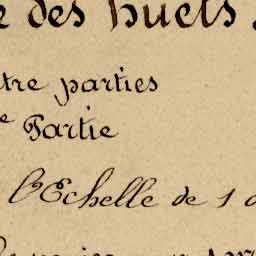 des huets
tre parties
e Partie
l'Echelle de 1 a